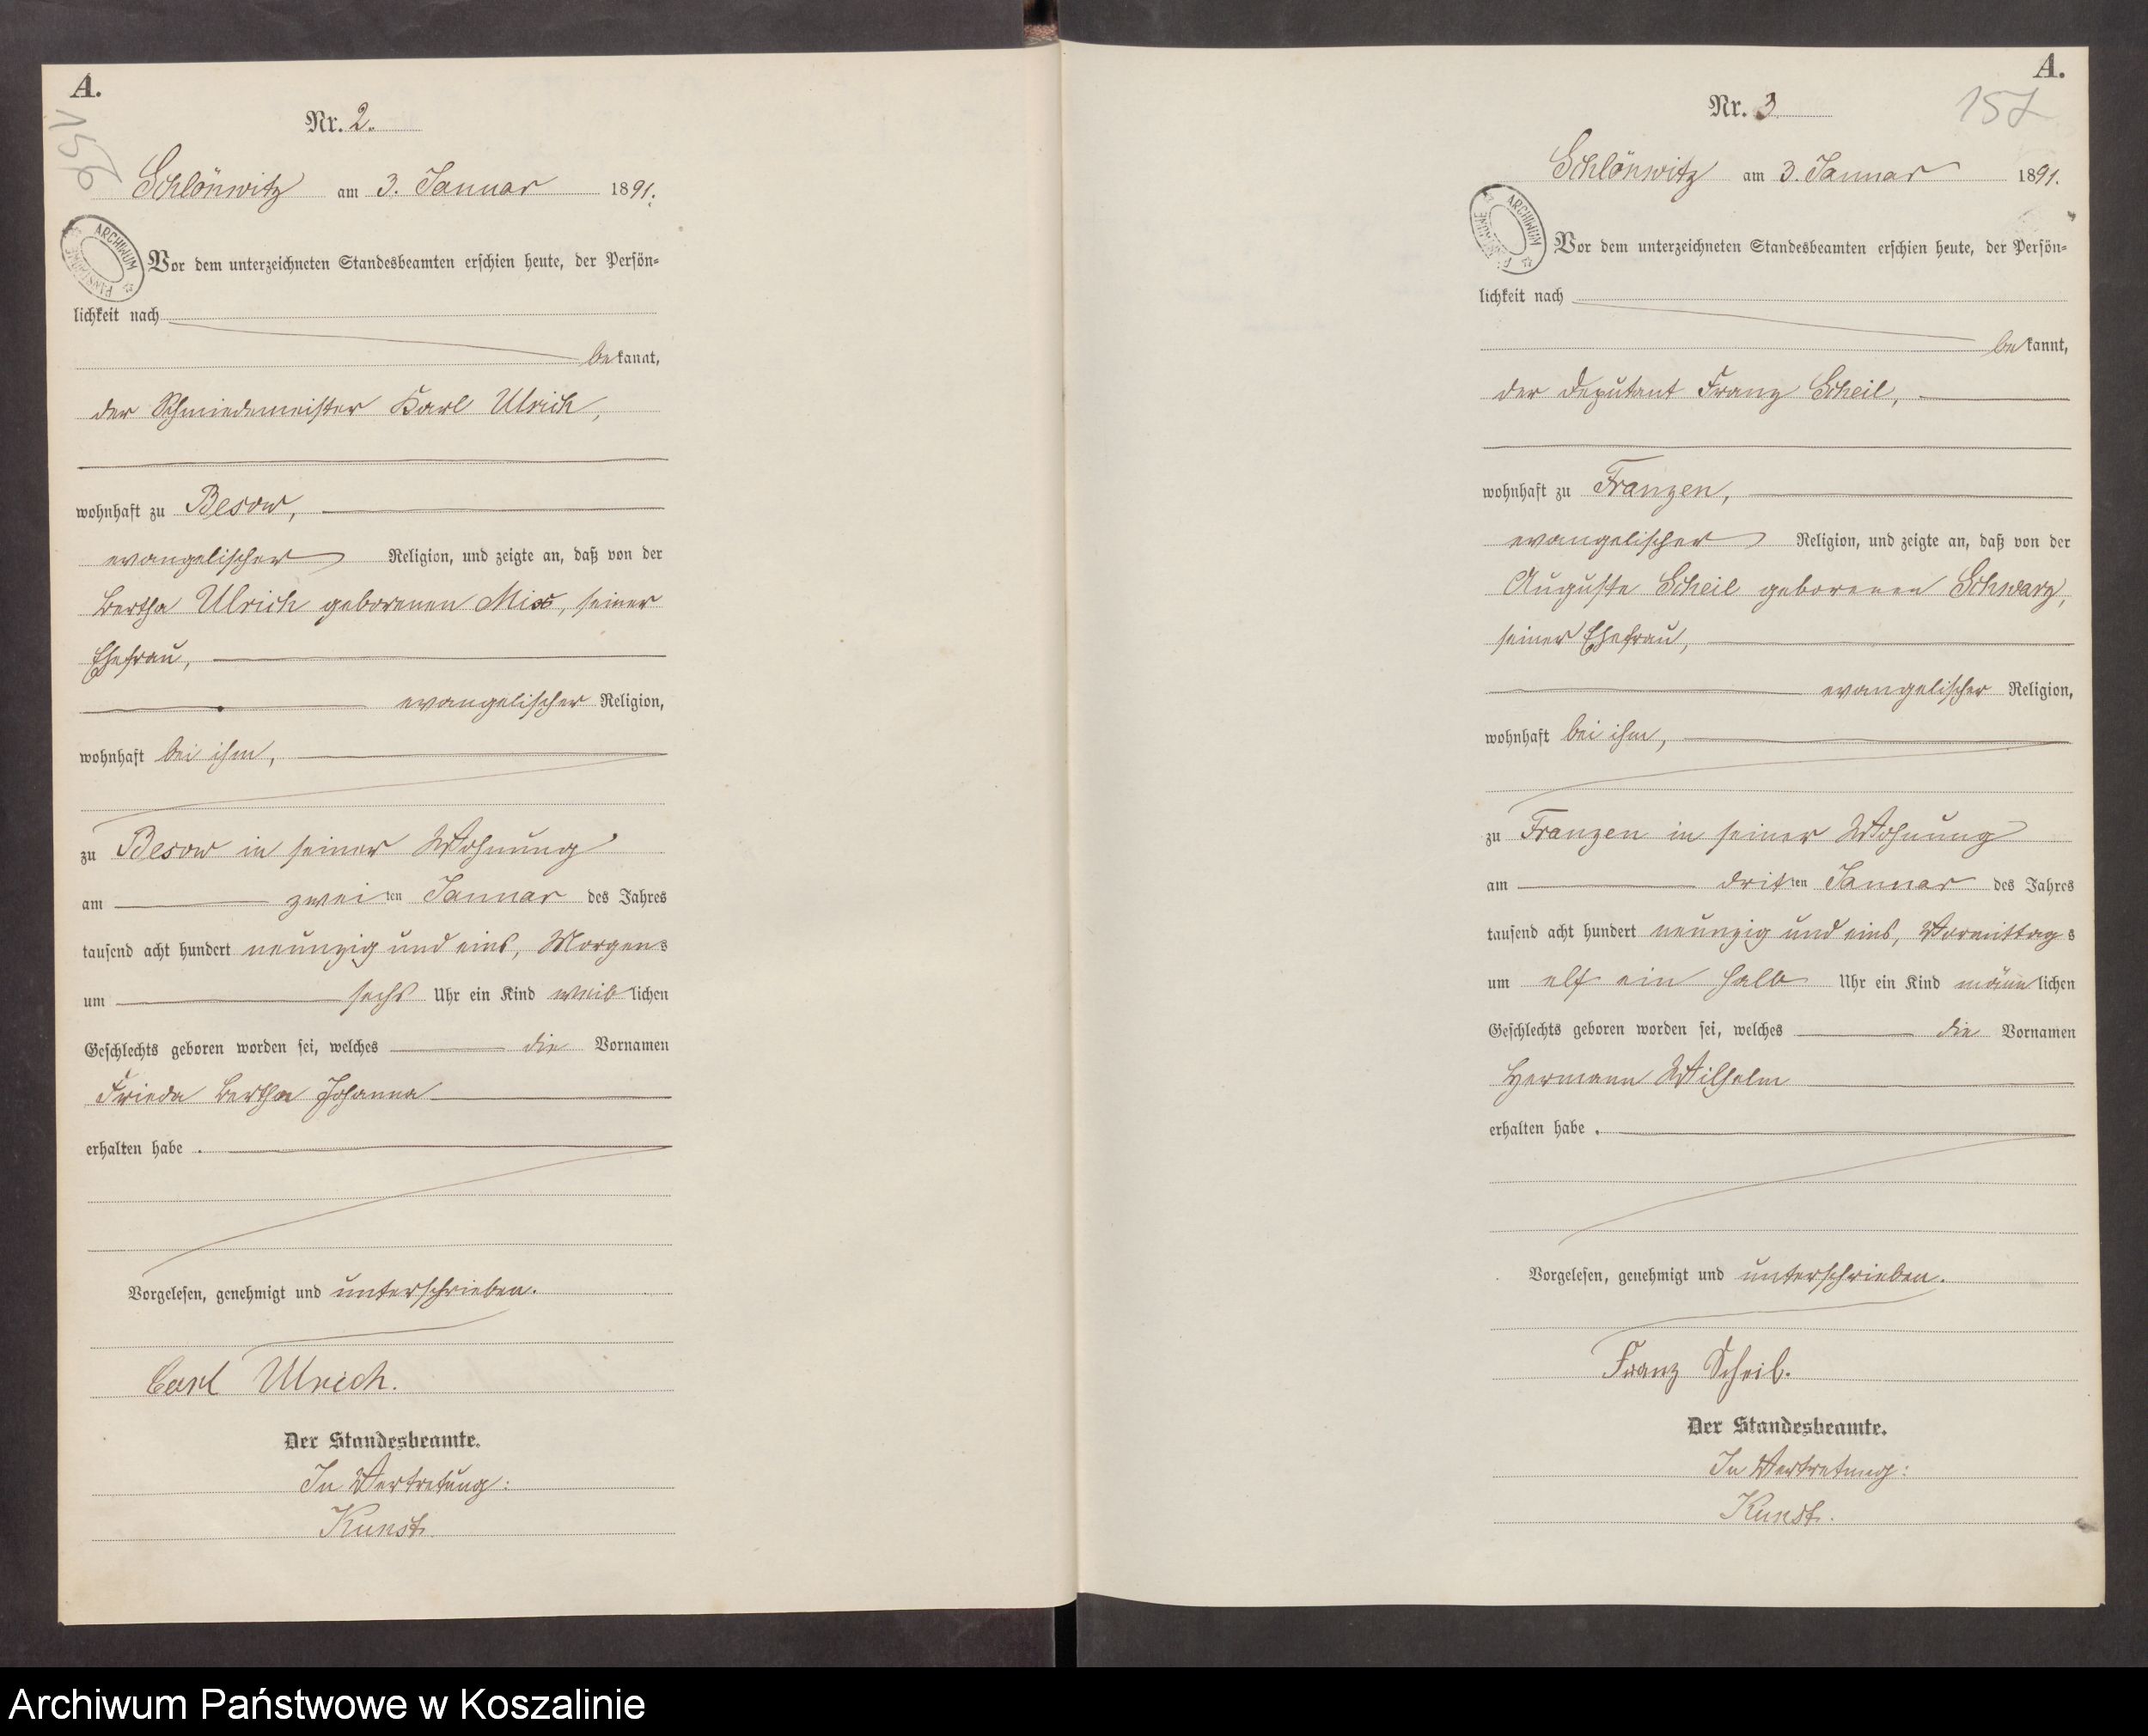 A.
156
Nr. 2.
Schlönwitz am 3. Januar 1891.
ARCHIWUM
Vor dem unterzeichneten Standesbeamten erschien heute, der Persön=
lichkeit nach
bekannt,
der Schmiedemeister Karl Ulrich,
wohnhaft zu Besow,
evangelischer Religion, und zeigte an, daß von der
Bertha Ulrich geborenen Mix, seiner
Ehefrau,
evangelischer Religion,
wohnhaft bei ihm,
zu Besow in seiner Wohnung
am zweiten Januar des Jahres
tausend acht hundert neunzig und eins, Morgens
um sechs Uhr ein Kind weiblichen
Geschlechts geboren worden sei, welches die Vornamen
Frieda Bertha Johanna
erhalten habe.
Vorgelesen, genehmigt und unterschrieben.
Carl Ulrich.
Der Standesbeamte.
In Vertretung:
Kunst.
A.
157
Nr. 3
Schlönwitz am 3. Januar 1891.
ARCHIWUM
Vor dem unterzeichneten Standesbeamten erschien heute, der Persön=
lichkeit nach
bekannt,
der Deputant Franz Scheil,
wohnhaft zu Franzen,
evangelischer Religion, und zeigte an, daß von der
Auguste Scheil geborenen Schwarz,
seiner Ehefrau,
evangelischer Religion,
wohnhaft bei ihm,
zu Franzen in seiner Wohnung
am dritten Januar des Jahres
tausend acht hundert neunzig und eins, Vormittags
um elf ein halb Uhr ein Kind männlichen
Geschlechts geboren worden sei, welches die Vornamen
Hermann Wilhelm
erhalten habe.
Vorgelesen, genehmigt und unterschrieben.
Franz Scheil.
Der Standesbeamte.
In Vertretung:
Kunst.
Archiwum Państwowe w Koszalinie